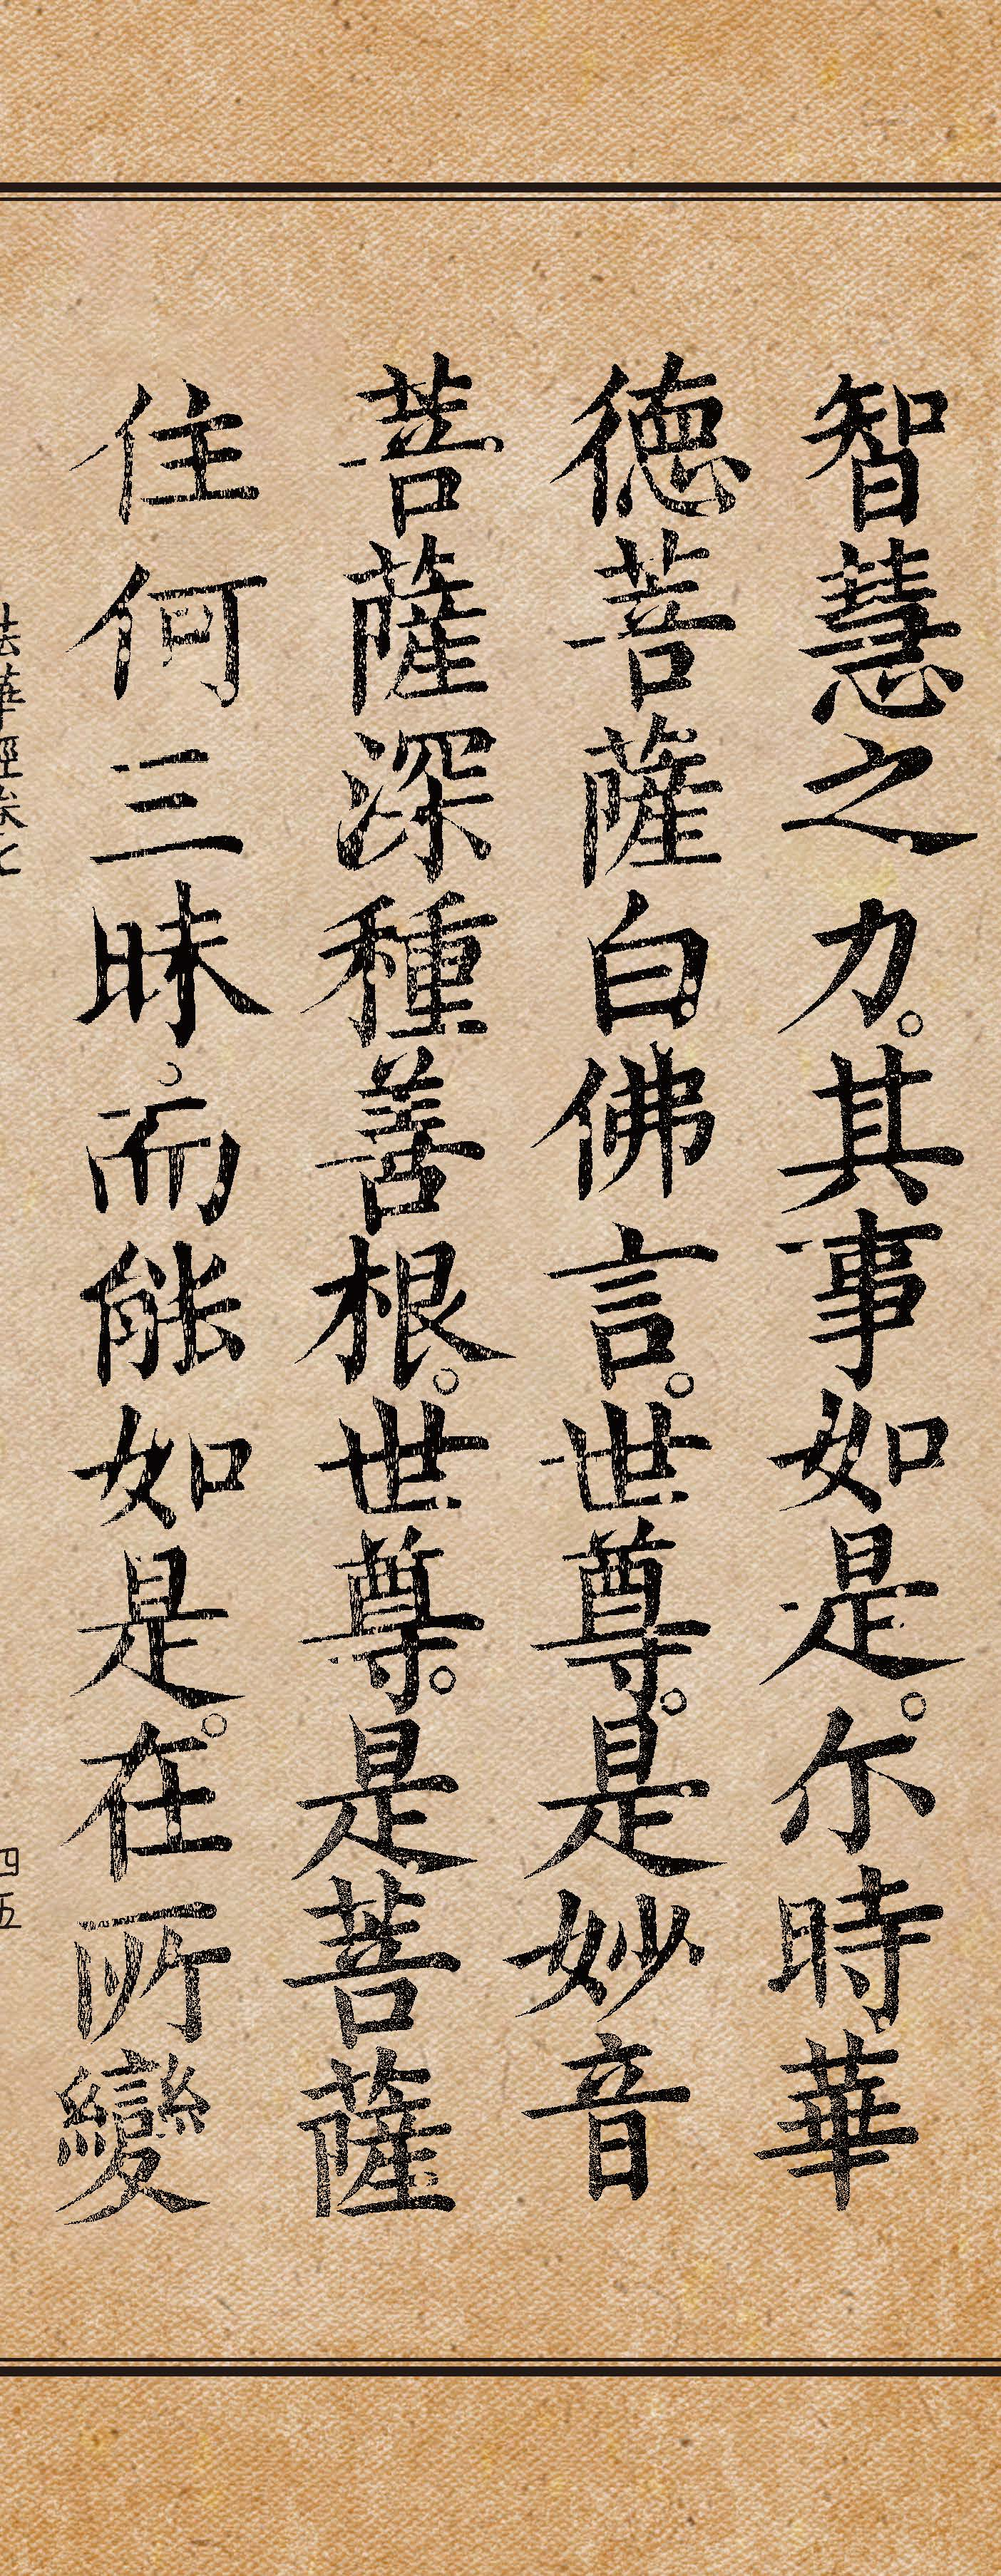 智慧之力。其事如是。尔時華
德菩薩白佛言。世尊。是妙音
菩薩深種善根。世尊。是菩薩
住何三昧而能如是。在所變
法華經卷七
四五